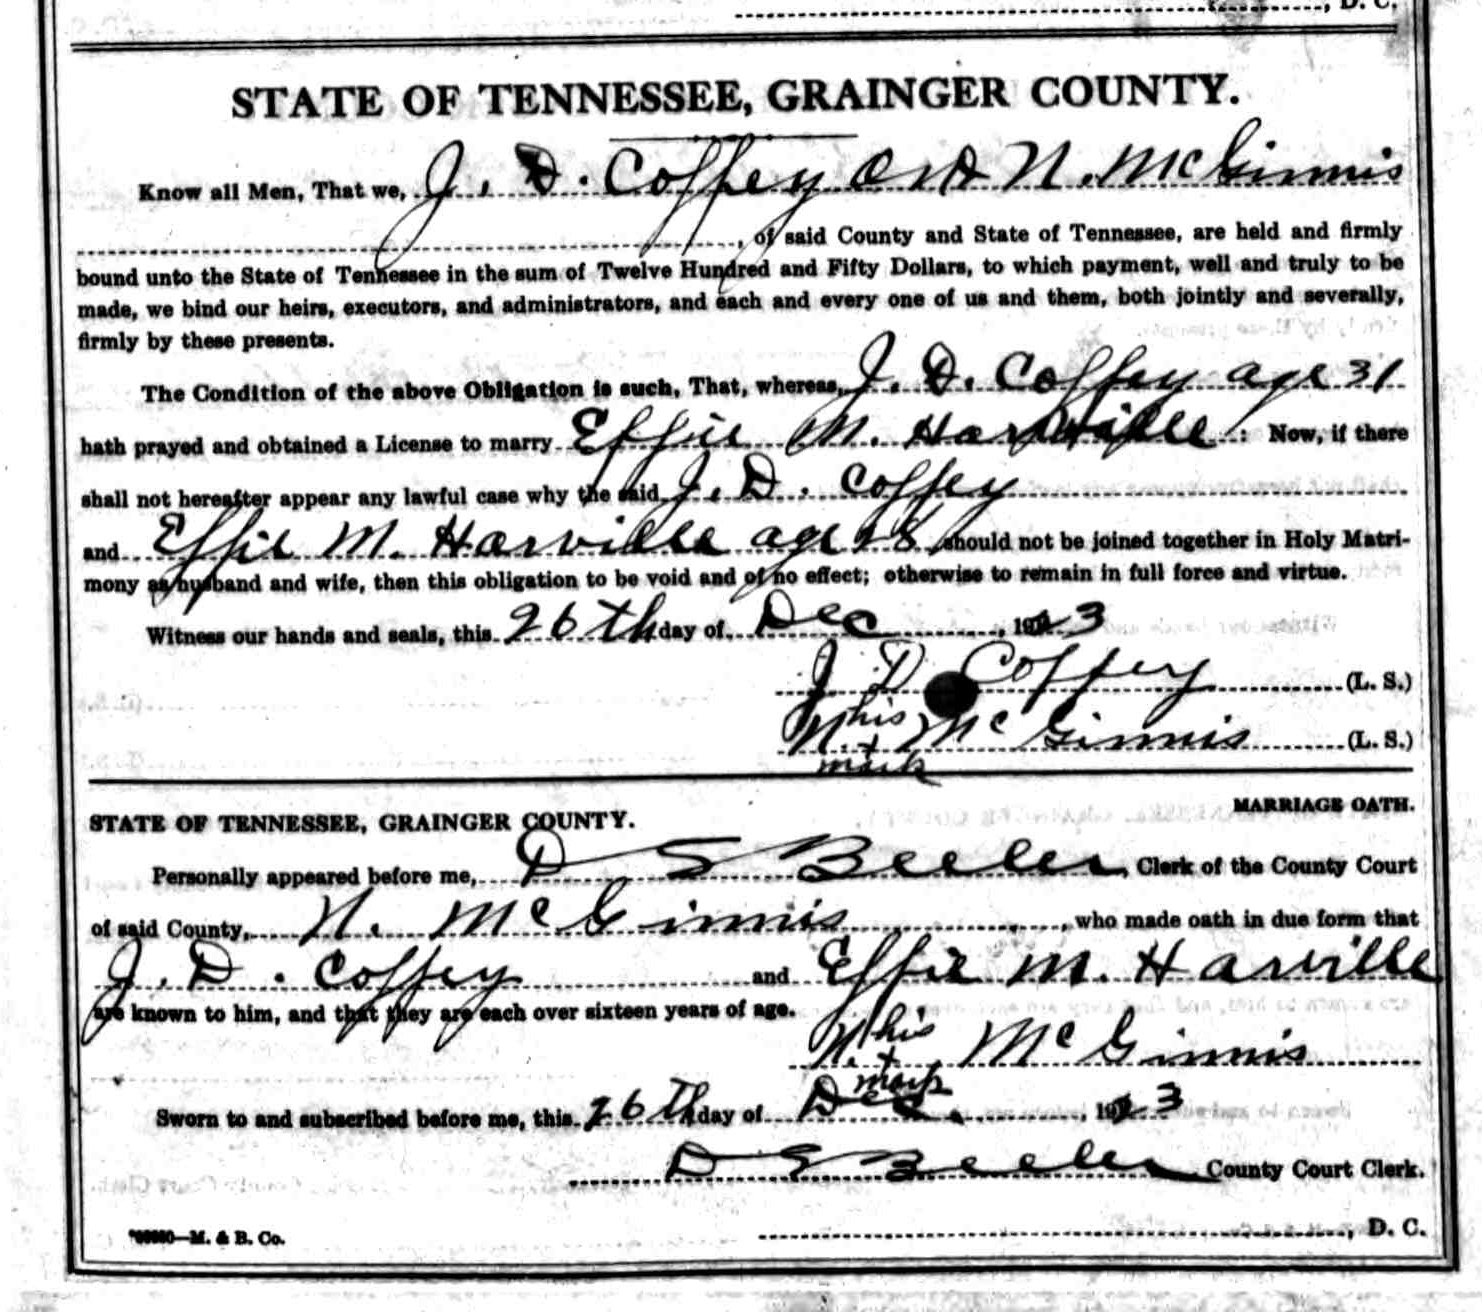 , D. C.
STATE OF TENNESSEE, GRAINGER COUNTY.
Know all Men, That we, J. D. Coffey and N. McGinnis
, of said County and State of Tennessee, are held and firmly
bound unto the State of Tennessee in the sum of Twelve Hundred and Fifty Dollars, to which payment, well and truly to be
made, we bind our heirs, executors, and administrators, and each and every one of us and them, both jointly and severally,
firmly by these presents.
The Condition of the above Obligation is such, That, whereas, J. D. Coffey age 31
hath prayed and obtained a License to marry Effie M. Harville : Now, if there
shall not hereafter appear any lawful case why the said J. D. Coffey
and Effie M. Harville age 28 should not be joined together in Holy Matri-
mony as husband and wife, then this obligation to be void and of no effect; otherwise to remain in full force and virtue.
Witness our hands and seals, this 26th day of Dec , 1923
J D Coffey (L. S.)
his
N. + McGinnis (L. S.)
mark
MARRIAGE OATH.
STATE OF TENNESSEE, GRAINGER COUNTY.
Personally appeared before me, D E Beeler, Clerk of the County Court
of said County, N. McGinnis , who made oath in due form that
J. D. Coffey and Effie M. Harville
are known to him, and that they are each over sixteen years of age.
his
N. + McGinnis
mark
Sworn to and subscribed before me, this 26th day of Dec. , 1923
D E Beeler County Court Clerk.
M. & B. Co.
, D. C.